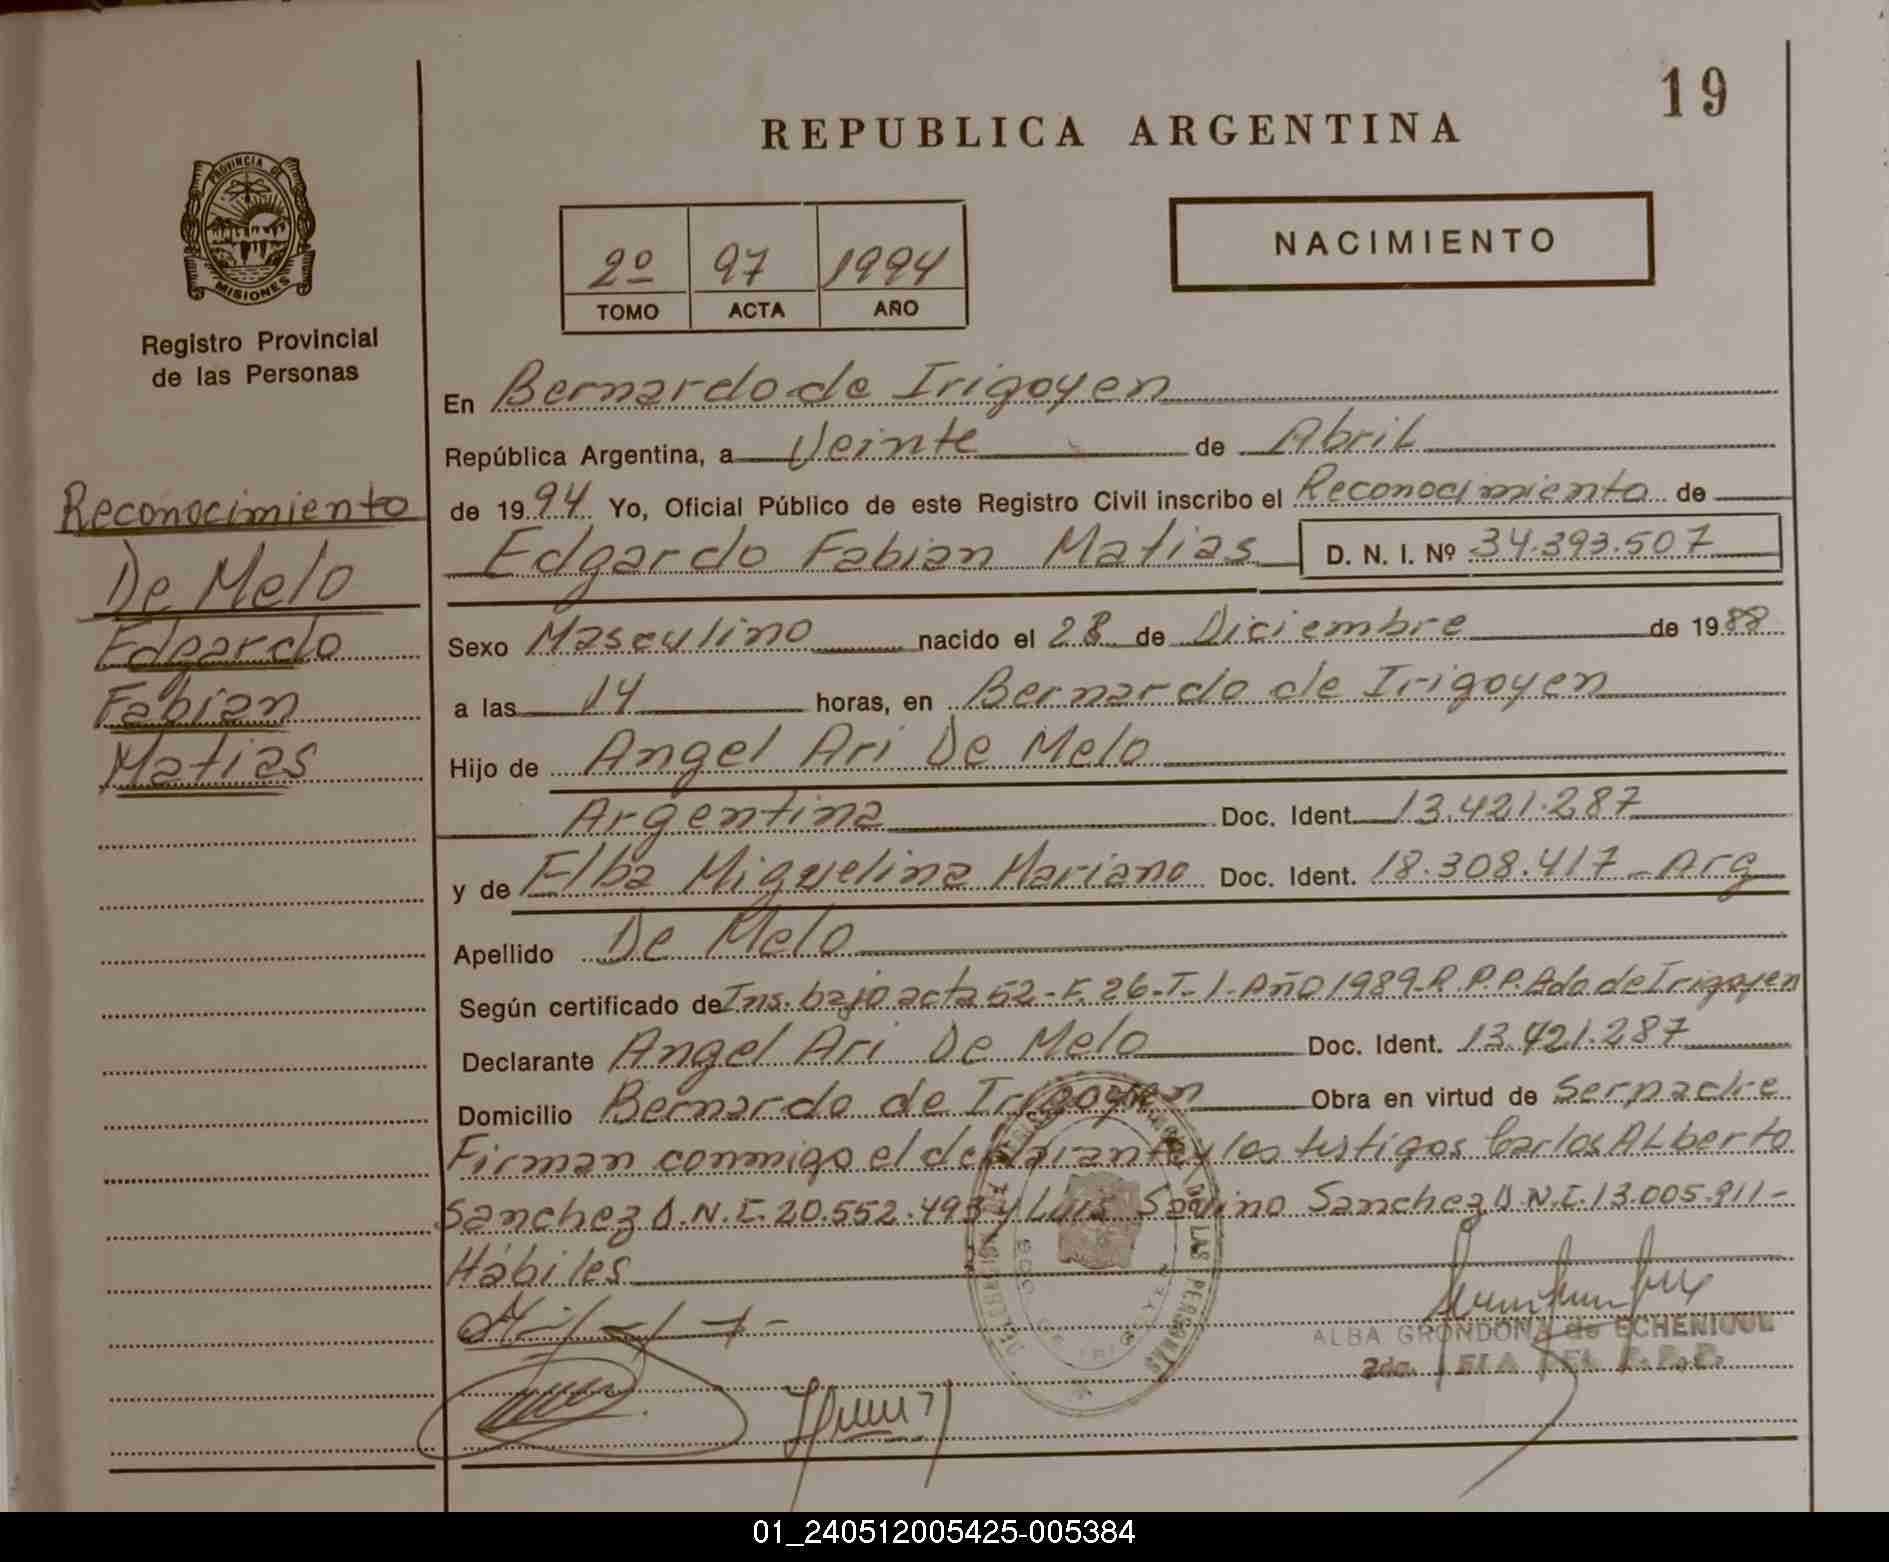 19
REPUBLICA ARGENTINA
PROVINCIA DE
MISIONES
Registro Provincial
de las Personas
2º 97 1994
TOMO ACTA AÑO
NACIMIENTO
Reconocimiento
De Melo
Edgardo
Fabian
Matias
En Bernardo de Irigoyen
República Argentina, a Veinte de Abril
de 1994 Yo, Oficial Público de este Registro Civil inscribo el Reconocimiento de
Edgardo Fabian Matias D. N. I. Nº 34.393.507
Sexo Masculino nacido el 28 de Diciembre de 1988
a las 14 horas, en Bernardo de Irigoyen
Hijo de Angel Ari De Melo
Argentina Doc. Ident. 13.421.287
y de Elba Miguelina Mariano Doc. Ident. 18.308.417 - Arg
Apellido De Melo
Según certificado de Ins. bajo acta 52 - F. 26 - T. 1 - Año 1989 - R.P.P. Bdo de Irigoyen
Declarante Angel Ari De Melo Doc. Ident. 13.421.287
Domicilio Bernardo de Irigoyen Obra en virtud de Ser padre
Firman conmigo el declarante y los testigos Carlos Alberto
Sanchez D.N.I. 20.552.493 y Luis Savino Sanchez D.N.I. 13.005.911 -
Hábiles
ALBA GRONDONA de ECHENIQUE
DE LAS PERSONAS
01_240512005425-005384